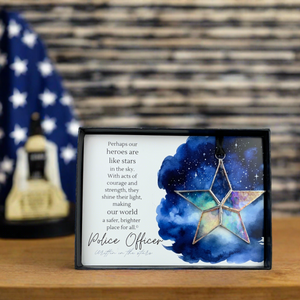 Perhaps our
heroes are
like stars
in the sky.
With acts of
courage and
strength, they
shine their light,
making
our world
a safer, brighter
place for all.®
Police Officer
Written in the Stars